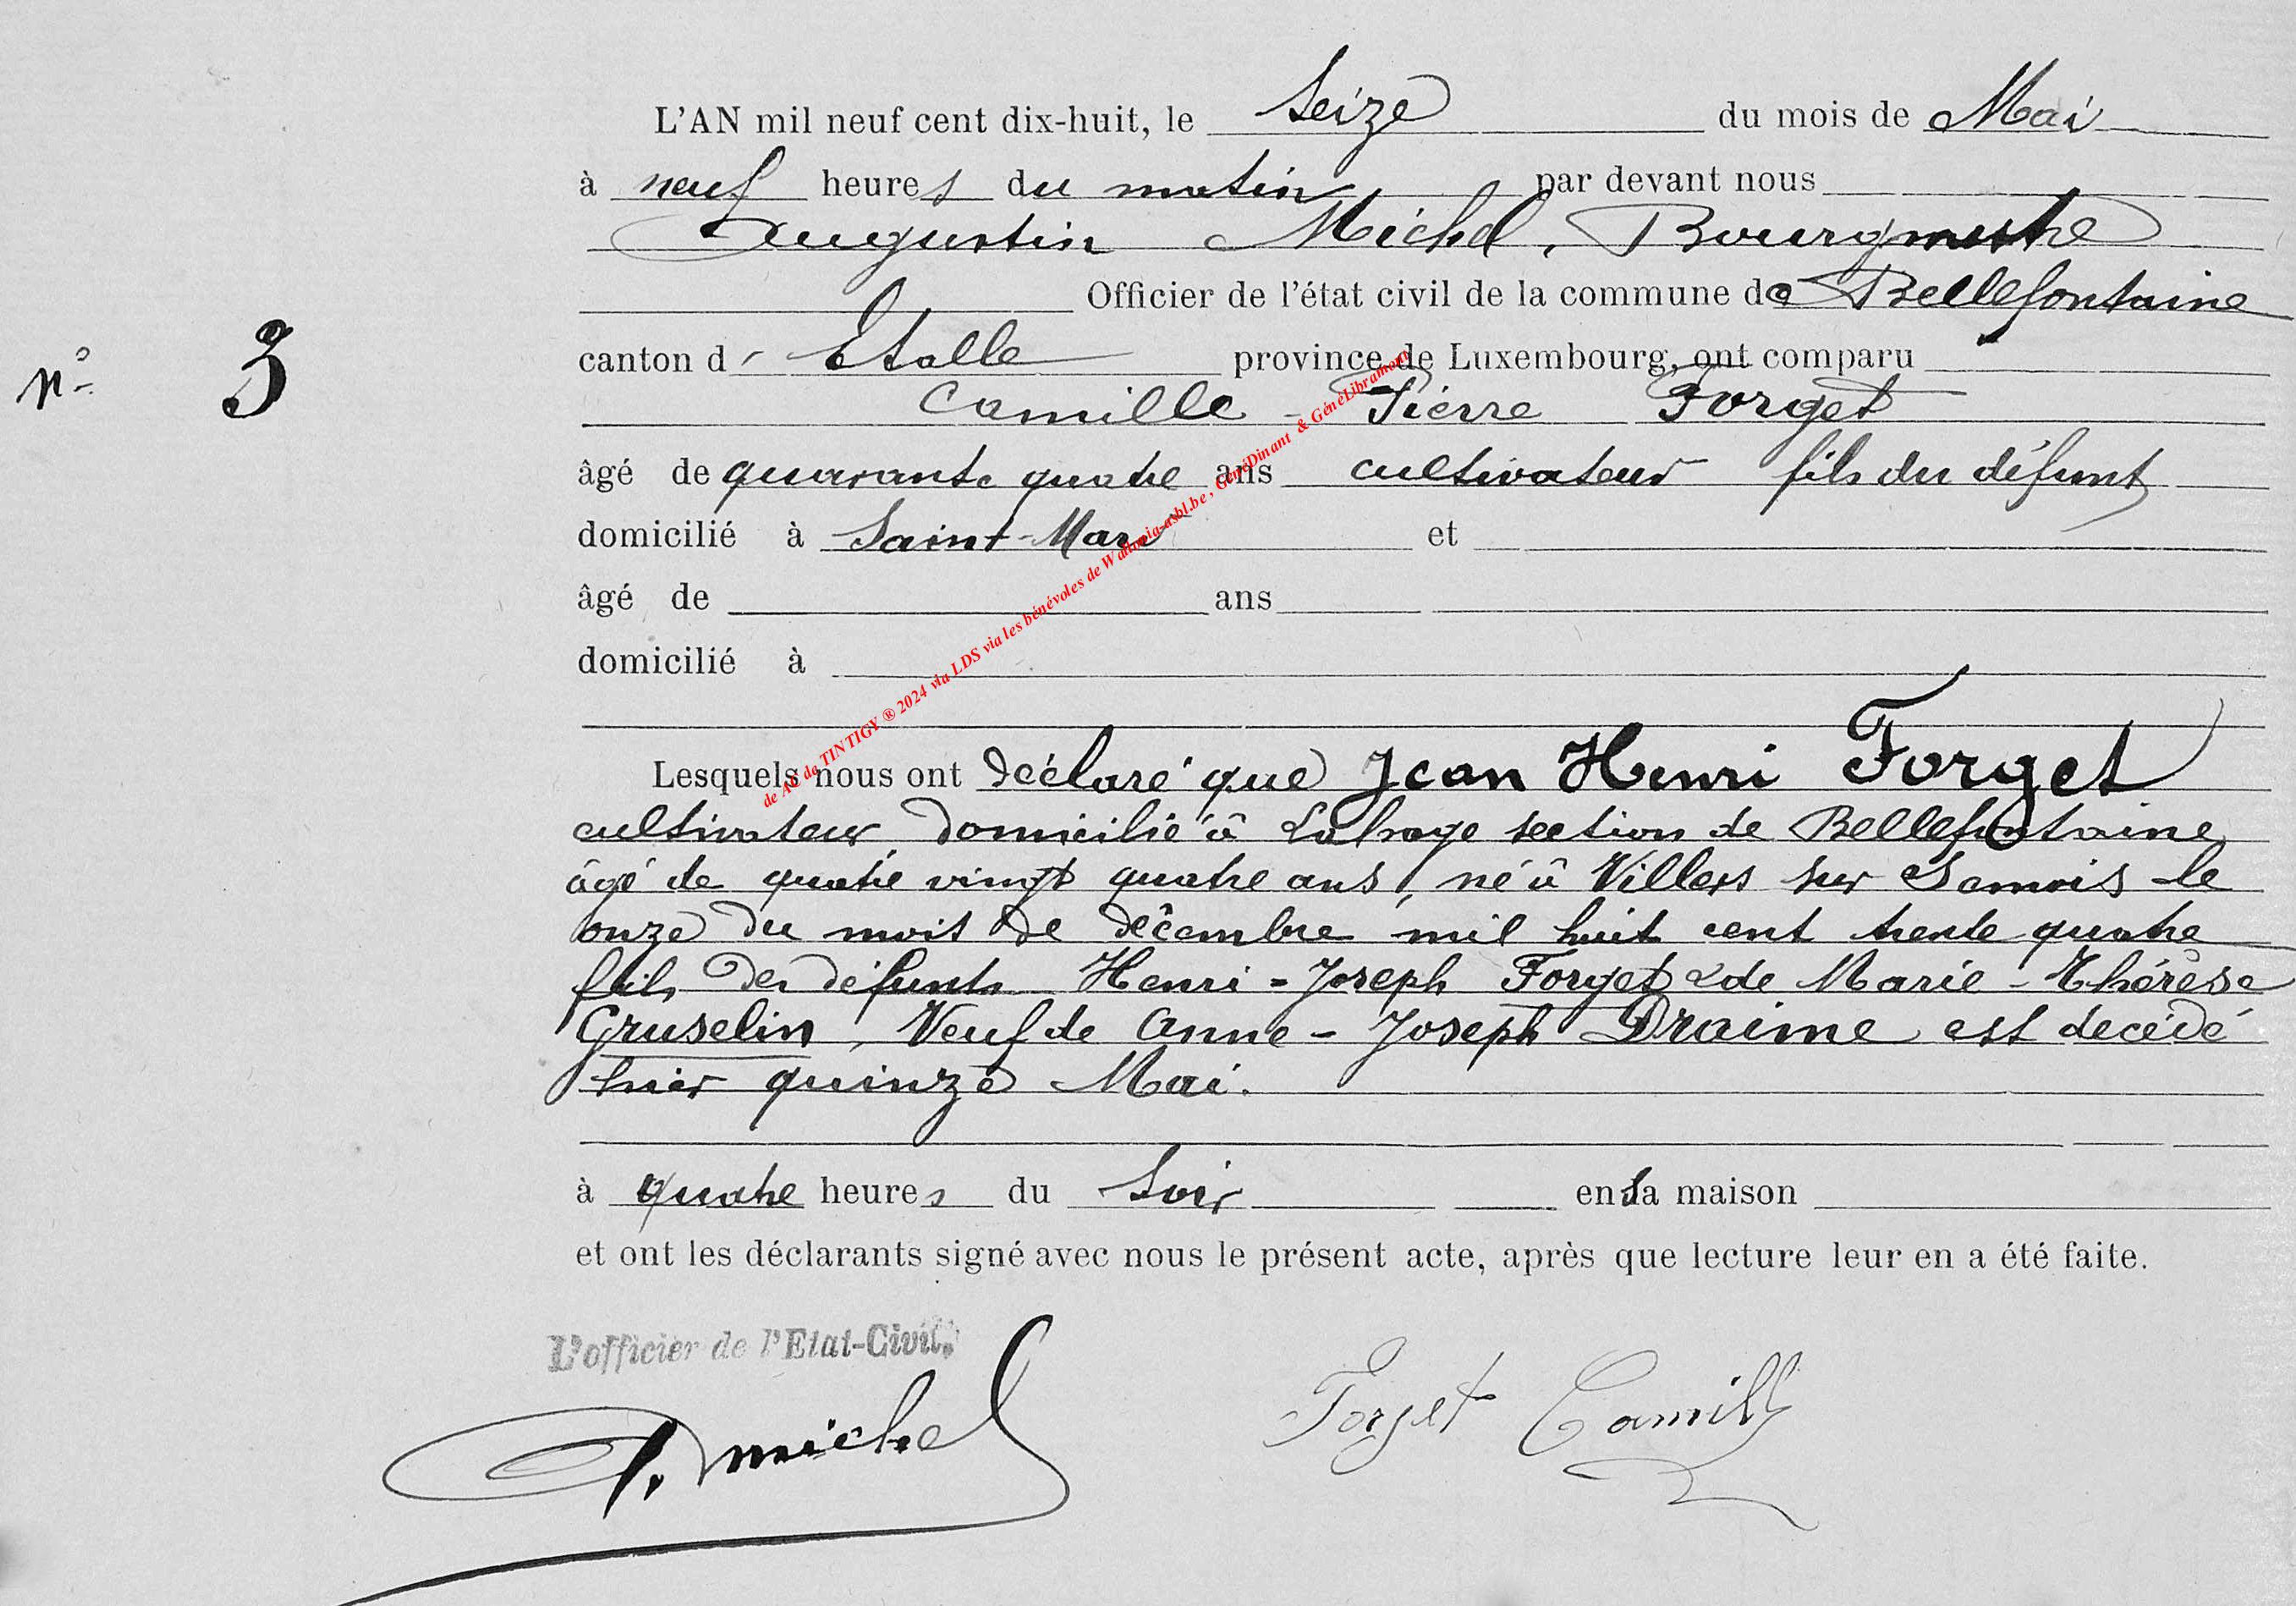 L'AN mil neuf cent dix-huit, le Seize du mois de Mai
à neuf heures du matin par devant nous
Augustin Michel, Bourgmestre
Officier de l'état civil de la commune de Bellefontaine
n° 3
canton d' Etalle province de Luxembourg, ont comparu
Camille - Pierre Forget
âgé de quarante quatre ans cultivateur fils du défunt
domicilié à Saint-Mard et
âgé de ans
domicilié à
Lesquels nous ont déclaré que Jean Henri Forget
cultivateur domicilié à Lahage section de Bellefontaine
âgé de quatre vingt quatre ans, né à Villers sur Semois le
onze du mois de décembre mil huit cent trente quatre
fils des défunts Henri-Joseph Forget & de Marie-Thérèse
Gruselin, Veuf de Anne-Joseph Draime est decédé
hier quinze Mai.
à quatre heures du Soir en sa maison
et ont les déclarants signé avec nous le présent acte, après que lecture leur en a été faite.
L'officier de l'Etat-Civil,
A. michel
Forget Camille
de AC de TINTIGY ® 2024 via LDS via les bénévoles de Wallonia-asbl.be, GénéDinant & GénéLibramont